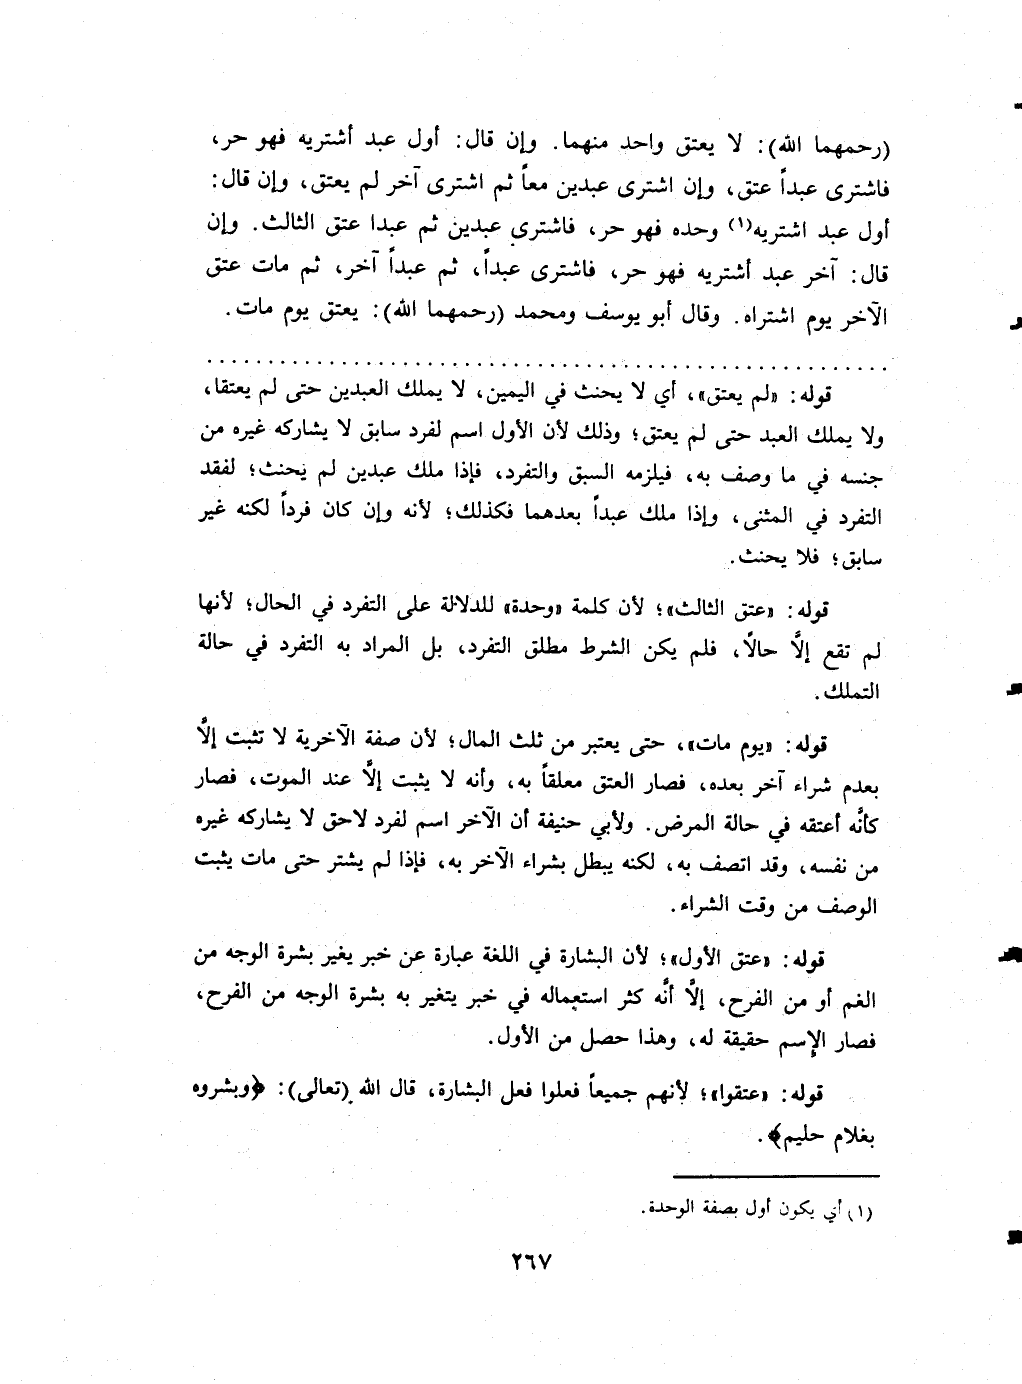 (رحمهما الله): لا يعتق واحد منهما. وإن قال: أول عبد أشتريه فهو حر،
فاشترى عبداً عتق، وإن اشترى عبدين معاً ثم اشترى آخر لم يعتق، وإن قال:
أول عبد اشتريه(١) وحده فهو حر، فاشترى عبدين ثم عبدا عتق الثالث. وإن
قال: آخر عبد أشتريه فهو حر، فاشترى عبداً، ثم عبداً آخر، ثم مات عتق
الآخر يوم اشتراه. وقال أبو يوسف ومحمد (رحمهما الله): يعتق يوم مات.
قوله: «لم يعتق»، أي لا يحنث في اليمين، لا يملك العبدين حتى لم يعتقا،
ولا يملك العبد حتى لم يعتق؛ وذلك لأن الأول اسم لفرد سابق لا يشاركه غيره من
جنسه في ما وصف به، فيلزمه السبق والتفرد، فإذا ملك عبدين لم يحنث؛ لفقد
التفرد في المثنى، وإذا ملك عبداً بعدهما فكذلك؛ لأنه وإن كان فرداً لكنه غير
سابق؛ فلا يحنث.
قوله: «عتق الثالث»؛ لأن كلمة «وحدة» للدلالة على التفرد في الحال؛ لأنها
لم تقع إلَّا حالًا، فلم يكن الشرط مطلق التفرد، بل المراد به التفرد في حالة
التملك.
قوله: «يوم مات»، حتى يعتبر من ثلث المال؛ لأن صفة الآخرية لا تثبت إلَّا
بعدم شراء آخر بعده، فصار العتق معلقاً به، وأنه لا يثبت إلَّا عند الموت، فصار
كأنَّه أعتقه في حالة المرض. ولأبي حنيفة أن الآخر اسم لفرد لاحق لا يشاركه غيره
من نفسه، وقد اتصف به، لكنه يبطل بشراء الآخر به، فإذا لم يشتر حتى مات يثبت
الوصف من وقت الشراء.
قوله: «عتق الأول»؛ لأن البشارة في اللغة عبارة عن خبر يغير بشرة الوجه من
الغم أو من الفرح، إلَّا أنَّه كثر استعماله في خبر يتغير به بشرة الوجه من الفرح،
فصار الإسم حقيقة له، وهذا حصل من الأول.
قوله: «عتقوا»؛ لأنهم جميعاً فعلوا فعل البشارة، قال الله (تعالى): ﴿وبشروه
بغلام حليم﴾.
(١) أي يكون أول بصفة الوحدة.
٢٦٧